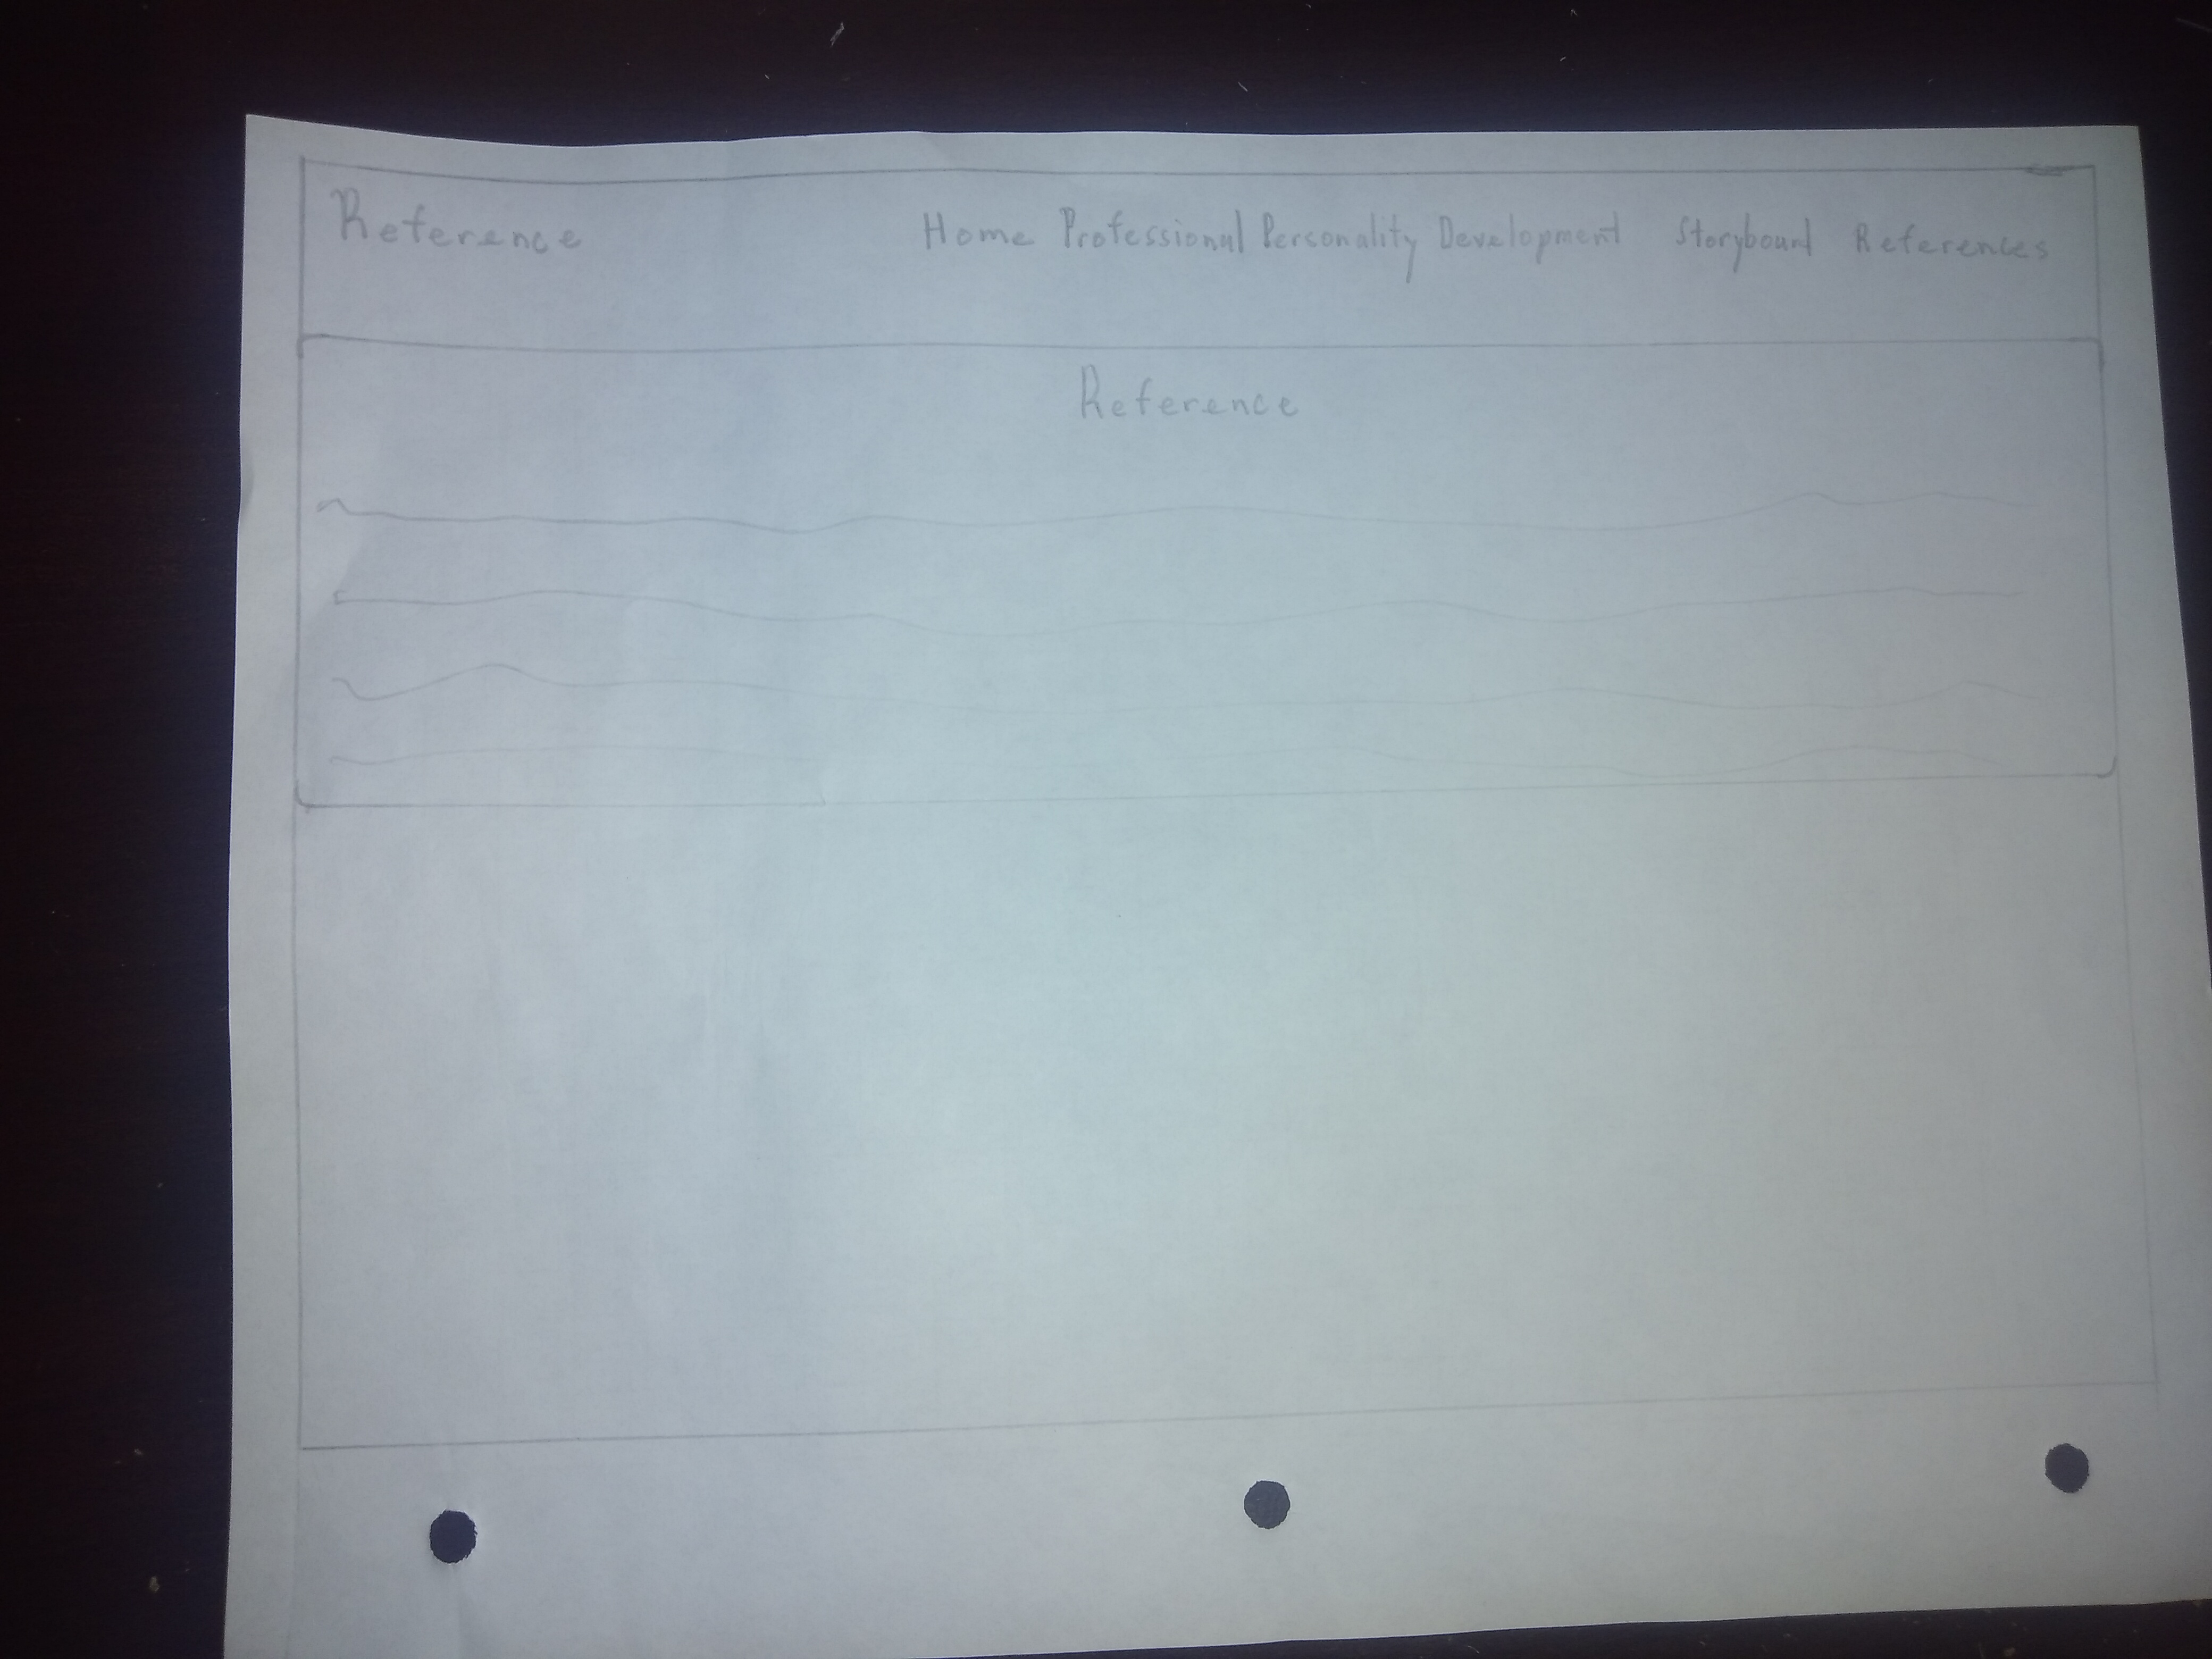 Reference Home Professional Personality Development Storyboard References
Reference